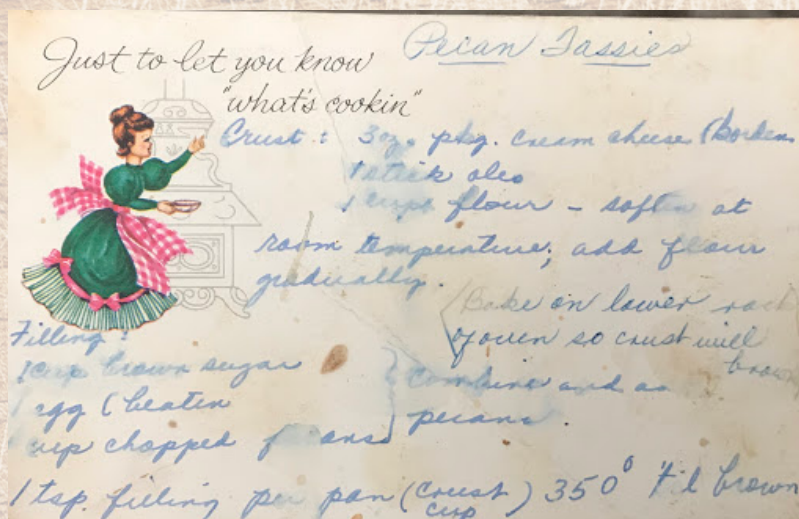 Just to let you know
"what's cookin"
Pecan Tassies
Crust : 3 oz. pkg. cream cheese (Borden
1 stick oleo
1 cup flour - soften at
room temperature; add flour
gradually.
(Bake on lower rack
of oven so crust will
brown
Filling :
1 cup brown sugar
1 egg (beaten
cup chopped pecans
} combine and add
pecans.
1 tsp. filling per pan (crust cup) 350° 'til brown